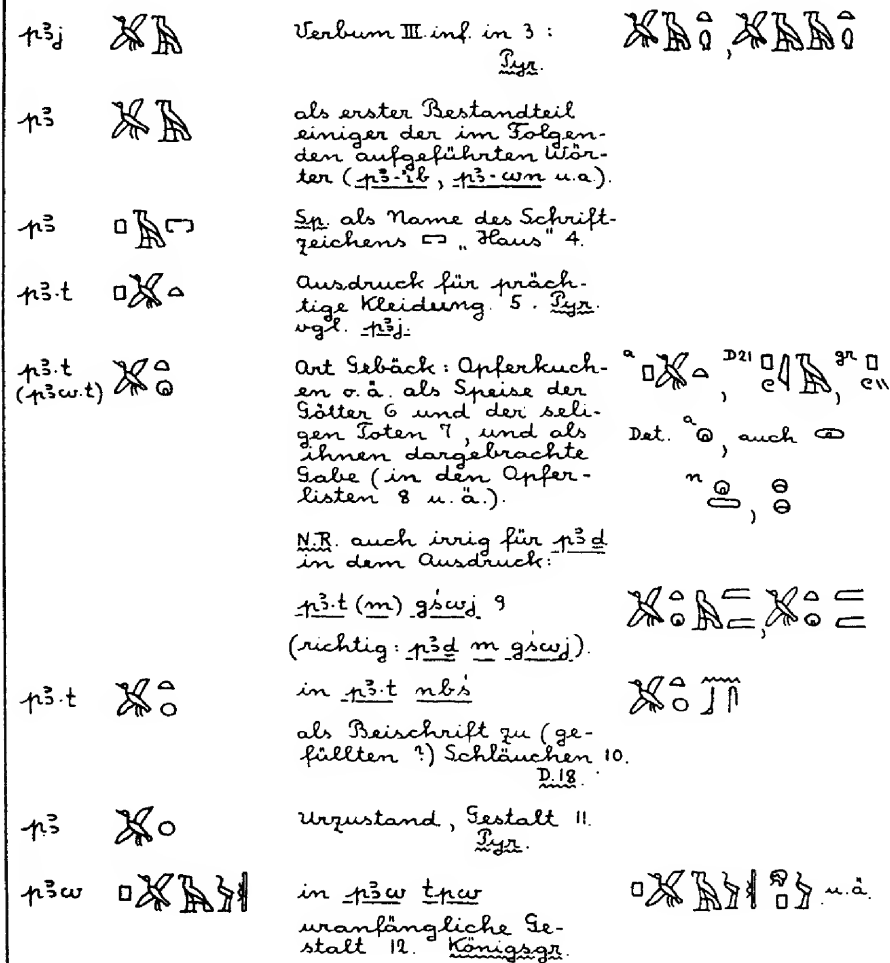 p3j 𓅮𓄿 Verbum III. inf. in 3 :
Pyr.
p3 𓅮𓄿 als erster Bestandteil
einiger der im Folgen-
den aufgeführten Wör-
ter (p3-ib, p3-wn u.a).
p3 𓊪𓄿𓉐 Sp. als Name des Schrift-
zeichens 𓉐 „Haus" 4.
p3.t 𓊪𓅮𓏏 Ausdruck für präch-
tige Kleidung. 5. Pyr.
vgl. p3j.
p3.t 𓅮𓏏 Art Gebäck: Opferkuch-
(p3w.t) en o.ä. als Speise der
Götter 6 und der seli-
gen Toten 7, und als
ihnen dargebrachte
Gabe (in den Opfer-
listen 8 u.ä.).
a 𓊪𓅮𓏏, D21 𓊪𓏲𓇋𓄿, gr 𓊪𓏲\\
Det. a, auch
n
N.R. auch irrig für p3d
in dem Ausdruck:
p3.t (m) gśwj 9
(richtig: p3d m gśwj).
p3.t 𓅮𓏏 in p3.t nbś 𓅮𓏏𓈖𓃀𓋴
als Beischrift zu (ge-
füllten ?) Schläuchen 10.
D.18.
p3 𓅮 Urzustand, Gestalt 11.
Pyr.
p3w 𓊪𓅮𓄿𓅱 in p3w tpw u.ä.
uranfängliche Ge-
stalt 12. Königsgr.